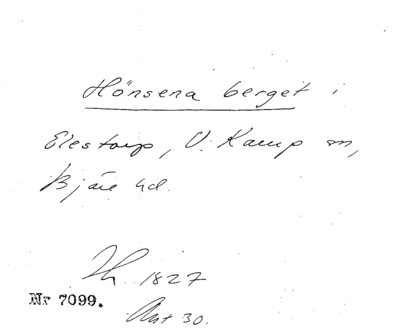 Hönsena berget i
Elestorp, V. Karup sn,
Bjäre hd.
Th. 1827
Nr 7099.
Ant 30.